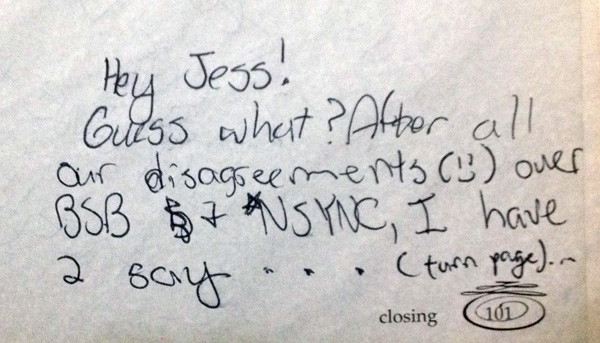 Hey Jess!
Guess what? After all
our disagreements (:) over
BSB + *NSYNC, I have
2 say . . . (turn page)...
closing 101